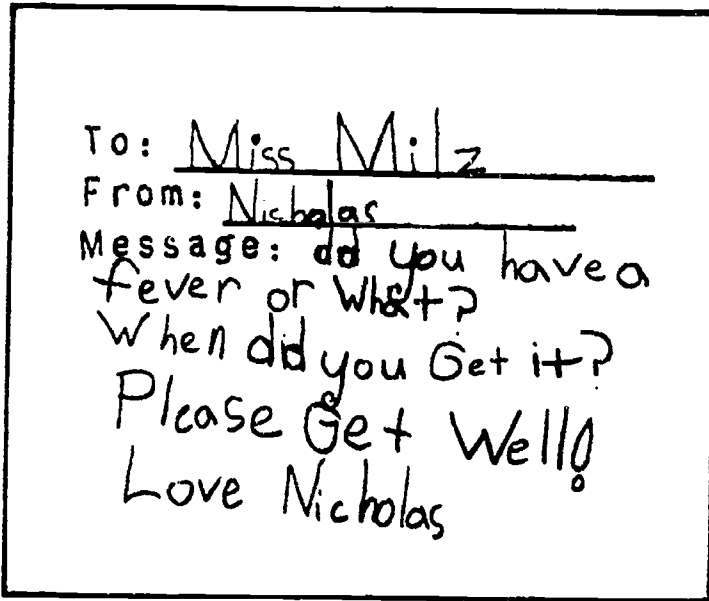 To: Miss Milz
From: Nicholas
Message: did you have a
fever or What?
When did you Get it?
Please Get Well!
Love Nicholas